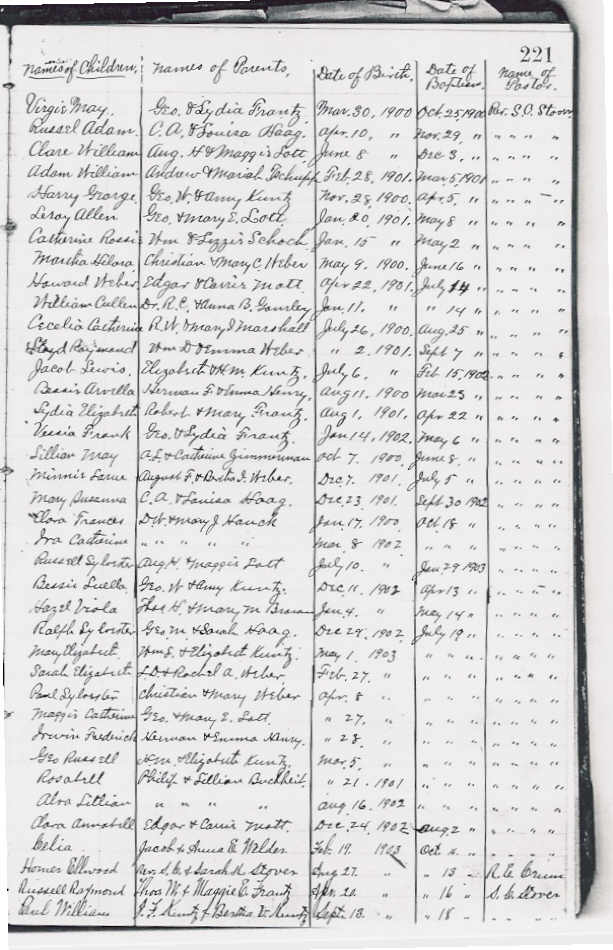 221
Names of Children. Names of Parents. Date of Birth. Date of Baptism. Name of Pastor.
Virgie May. Geo. & Lydia Frantz. Mar. 30, 1900 Oct. 25, 1900 Rev. S.C. Stover
Russel Adam. C. A. & Louisa Haag. Apr. 10, " Nov. 29, " " " " "
Clare William Aug. H & Maggie Lott. June 8 " Dec 3, " " " " "
Adam William Andrew & Mariah Feb. 28, 1901. Mar. 5, 1901 " " " "
Harry George. Geo. W. & Amy Kuntz Nov. 28, 1900. Apr. 5, " " " " "
Leroy Allen Geo. & Mary E. Lott. Jan. 20, 1901. May 8 " " " " "
Catherine Rossie Wm & Lizzie Schoch. Jan. 15 " May 2 " " " " "
Martha Christian & Mary C. Weber May 9, 1900. June 16 " " " " "
Howard Weber. Edgar & Carrie Mott. Apr 22, 1901. July 14 " " " " "
William Cullen Dr. R. C. & Anna B. Gourley Jan. 11, " " 14 " " " " "
Cecelia Catherine R. W. & Mary J Marshall July 26, 1900. Aug. 25 " " " " "
Lloyd Raymond Wm D & Emma Weber " 2, 1901. Sept 7 " " " " "
Jacob Lewis. Elizabeth & H. M. Kuntz. July 6, " Feb 15, 1902 " " " "
Bessie Arvella Herman F. & Emma Henry. Aug 11, 1900 Mar 23 " " " " "
Lydia Elizabeth Robert & Mary Frantz. Aug 1, 1901. Apr 22 " " " " "
Vessia Frank Geo. & Lydia Frantz. Jan 14, 1902. May 6 " " " " "
Lillian May A. L. & Catherine Zimmerman Oct 7. 1900. June 8, " " " " "
Minnie August F. & Bertha I. Weber. Dec. 7. 1901. July 5 " " " " "
Mary Susanna C. A. & Louisa Haag. Dec. 23, 1901. Sept 30 1902 " " " "
Clora Frances D W. & Mary J. Hauck Jan. 17. 1900. Oct 18 " " " " "
Ira Catherine " " " " " Mar 8 1902 " " " " " "
Russell Sylvester Aug H. & Maggie Lott July 10. " Jan. 29 1903 " " " "
Bessie Luella Geo. W & Amy Kuntz. Dec. 11, 1902 Apr 13 " " " " "
Hazel Viola Thos H. & Mary M. Brown Jan. 4. " May 14 " " " " "
Ralph Sylvester Geo. M. & Sarah Haag. Dec 29, 1902. July 19 " " " " "
Mary Elizabeth. Wm S. & Elizabeth Kuntz. May 1, 1903 " " " " " " "
Sarah Elizabeth L. D. & Rachel A. Weber. Feb. 27, " " " " " " " "
Paul Sylvester Christian & Mary Weber Apr. 8 " " " " " " " "
Maggie Catherine Geo. & Mary E. Lott. " 27, " " " " " " " "
Irwin Frederick Herman & Emma Henry. " 28 " " " " " " " "
Geo Russell H. M. & Elizabeth Kuntz. Mar. 5, " " " " " " " "
Rosabell Philip & Lillian Buckheit. " 21. 1901 " " " " " " "
Alva Lillian " " " " Aug. 16. 1902 " " " " " "
Clora Annabell Edgar & Carrie Mott. Dec. 24, 1902 Aug 2 " " " " "
Celia Jacob & Anna E. Welder Feb. 19. 1903 Oct " " " " "
Homer Ellwood Rev. S. C. & Sarah K Stover Aug 27. " " 13 " R. C. Crum
Russell Raymond Thos W. & Maggie C. Frantz Apr. 20. " " 16 " S. C. Stover
Paul William J. F. Kuntz & Bertha V. Kuntz Sept. 13. " " 18 " " " "